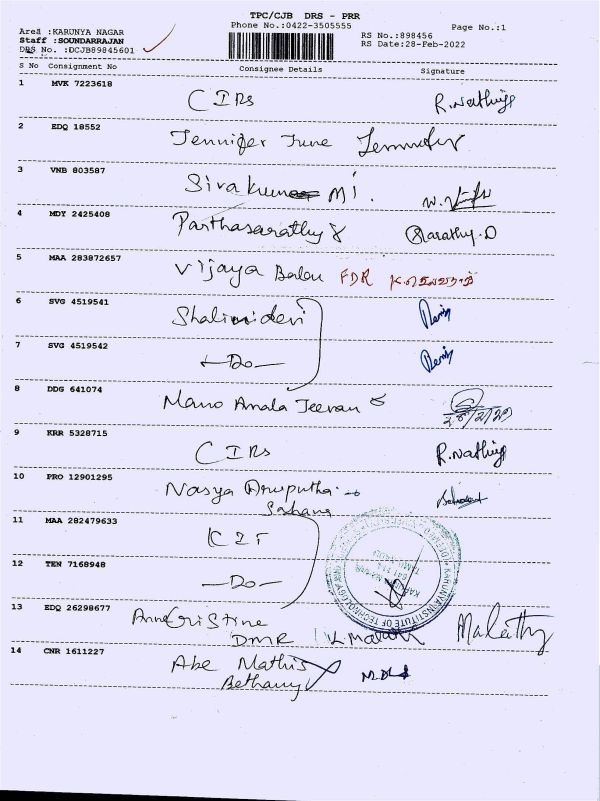 TPC/CJB DRS - PRR
Phone No.:0422-3505555
Page No.:1
Area :KARUNYA NAGAR
Staff :SOUNDARRAJAN
DRS No. :DCJB89845601
RS No.:898456
RS Date:28-Feb-2022
S No Consignment No Consignee Details Signature
1 MVK 7223618 CIRs R.Nathiya
2 EDQ 18552 Jennifer June
3 VNB 803587 Sivakumar M
4 MDY 2425408 Parthasarathy Sarathy.D
5 MAA 283872657 Vijaya Balan FDR
6 SVG 4519541 Shalinidevi
7 SVG 4519542 —Do—
8 DDG 641074 Mano Amala Jeevan
9 KRR 5328715 CIRs R.Nathiya
10 PRO 12901295 Nasya Arruputha
Sahana
11 MAA 282479633
12 TEN 7168948 —Do—
13 EDQ 26298677 Anne Cristine
DMR Malathy
14 CNR 1611227 Abe Mathis
Bethany
KARUNYA INSTITUTE OF TECHNOLOGY